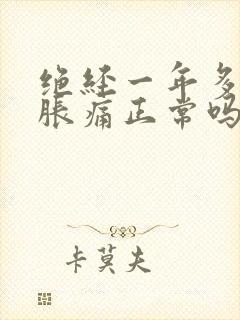 绝经一年多
胀痛正常吗
卡莫夫